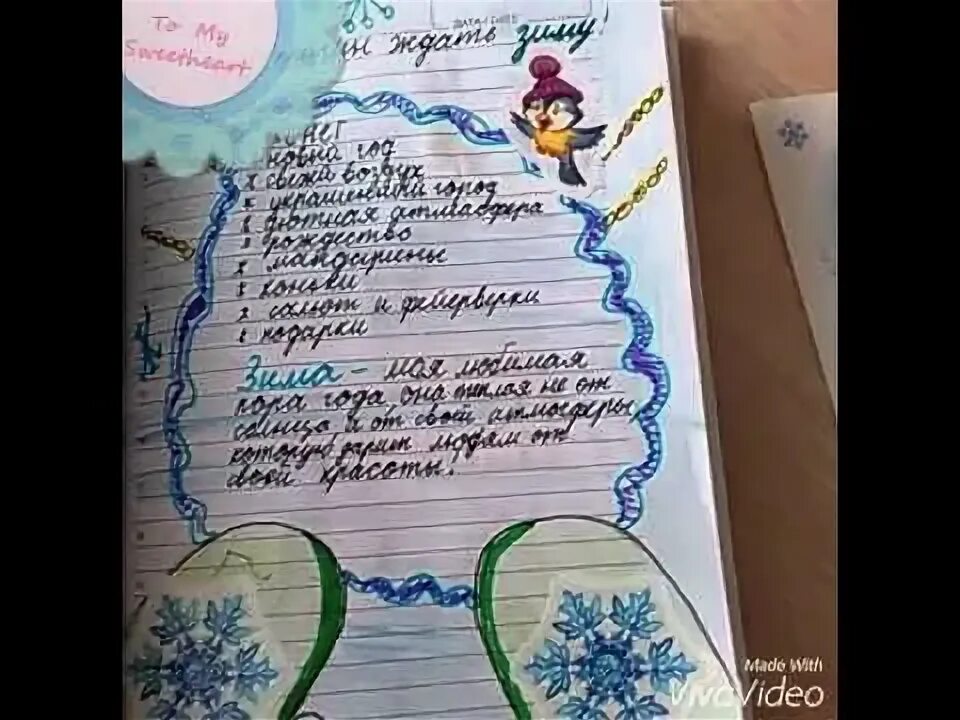 To My
Sweetheart
ждать зиму!
новый год
x свежий воздух
x украшенный город
x уютная атмасфера
x рождество
x мандарины
x коньки
x салют и фейерверки
x подарки
Зима – моя любимая
пора года она тёплая не от
солнца и от свой атмосферы,
которую дарит людям от
свой красоты.
Made With
VivaVideo